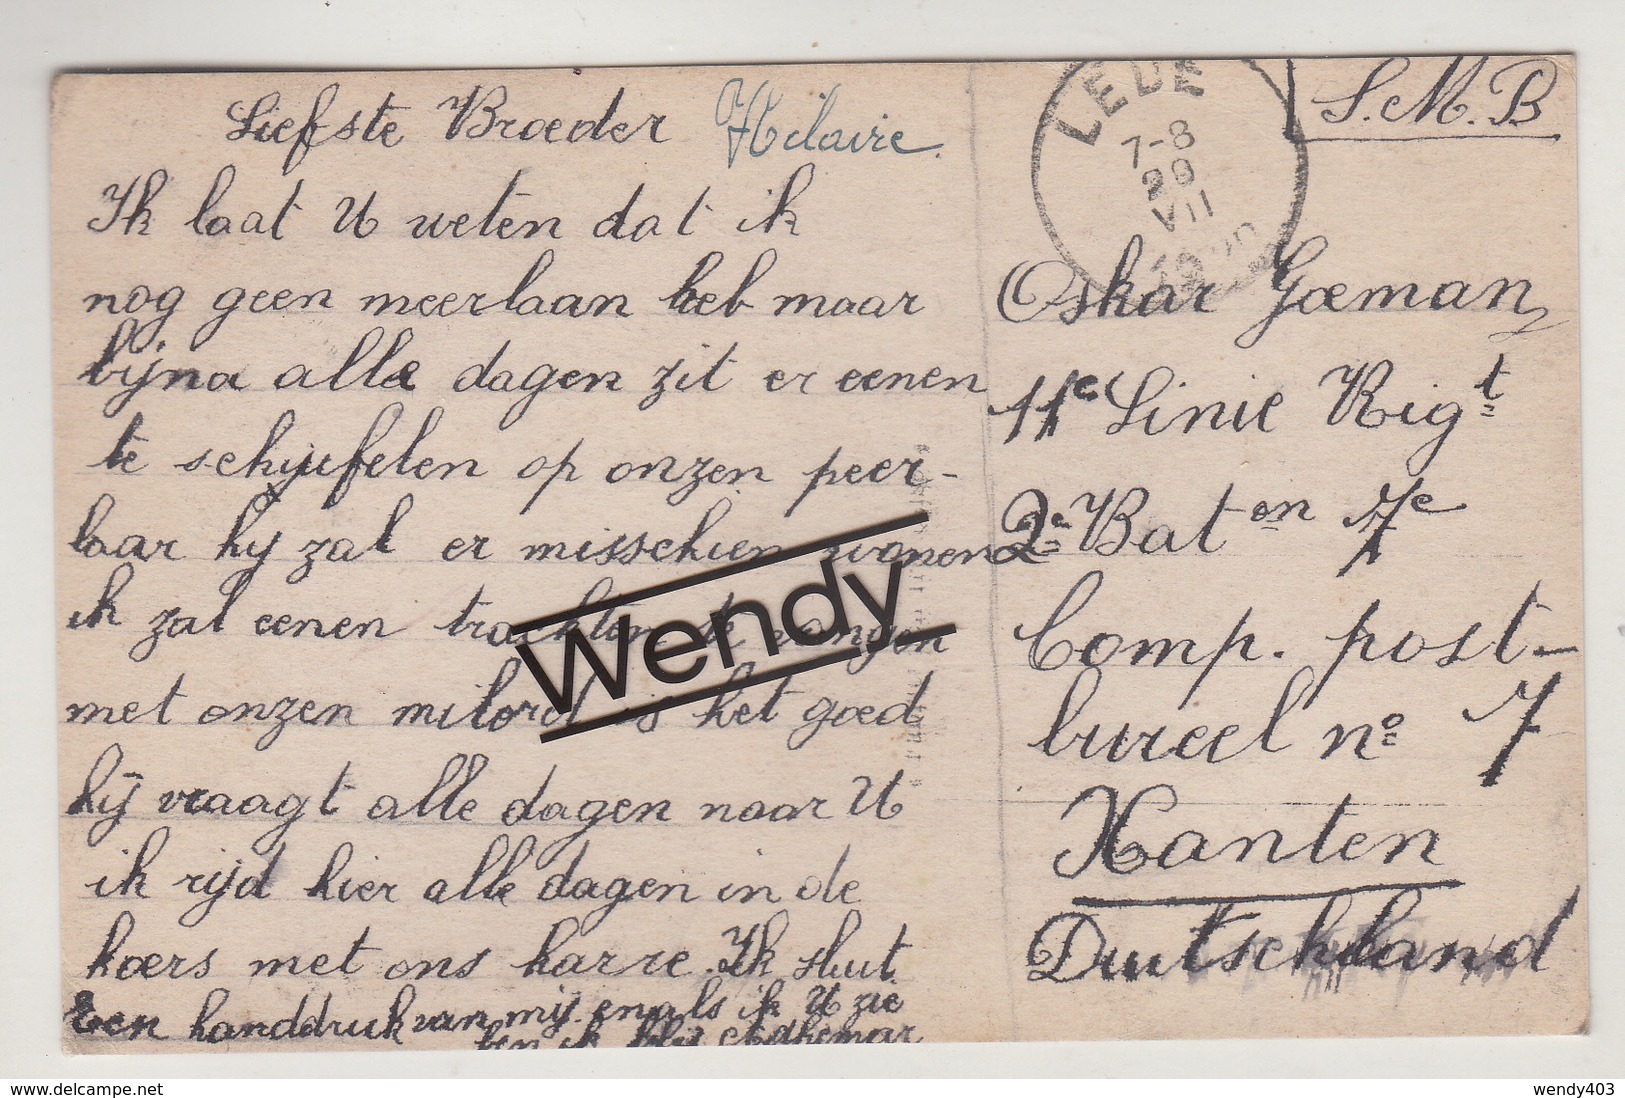 Liefste Broeder Hilaire.
Ik laat U weten dat ik
nog geen meerlaan heb maar
bijna alle dagen zit er eenen
te schijufelen op onzen peer-
laar hij zal er misschien wonen
ik zal eenen trachten te vangen
met onzen milord is het goed
hij vraagt alle dagen naar U
ik rijd hier alle dagen in de
koers met ons karre. Ik sluit
Een handdruk van mij en als ik U zie
ben ik blij Adhemar
LEDE
7-8
28
VII
1920
S.M.B
Oskar Goeman
11e Linie Rigt
2e Baton 7e
Comp. post-
bureel no 7
Xanten
Duitschland
Wendy
delcampe.net
wendy403